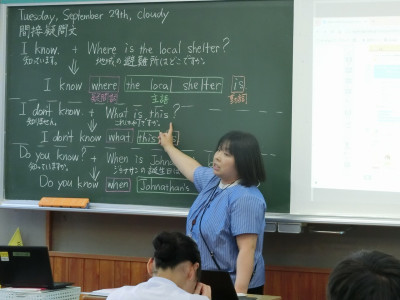 Tuesday, September 29th, Cloudy
間接疑問文
I know. + Where is the local shelter?
知っています。 地域の避難所はどこですか。
I know where the local shelter is
疑問詞 主語 動詞
I don't know. + What is this?
知りません。 これは何ですか。
I don't know what this is
Do you know? + When is
知っていますか。
Do you know when Jonathan's